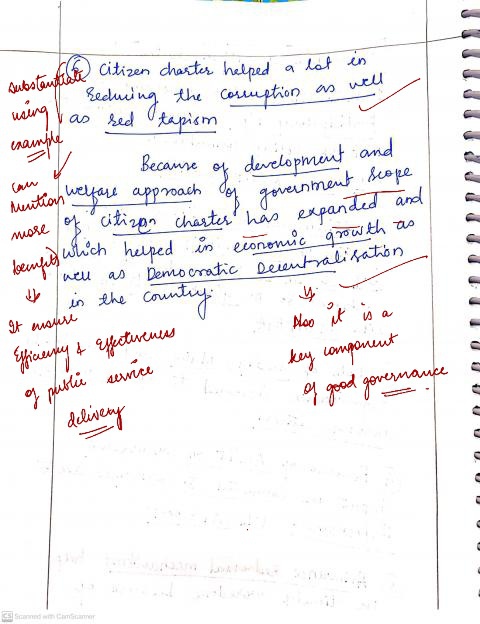 6 Citizen charter helped a lot in
reducing the corruption as well
as red tapism
Because of development and
welfare approach of government scope
of citizen charter has expanded and
which helped in economic growth as
well as Democratic Decentralisation
in the country.
substantiate
using
example
can
mention
more
benefits
It ensure
Efficiency & effectiveness
of public service
delivery
Also it is a
key component
of good governance
CS Scanned with CamScanner